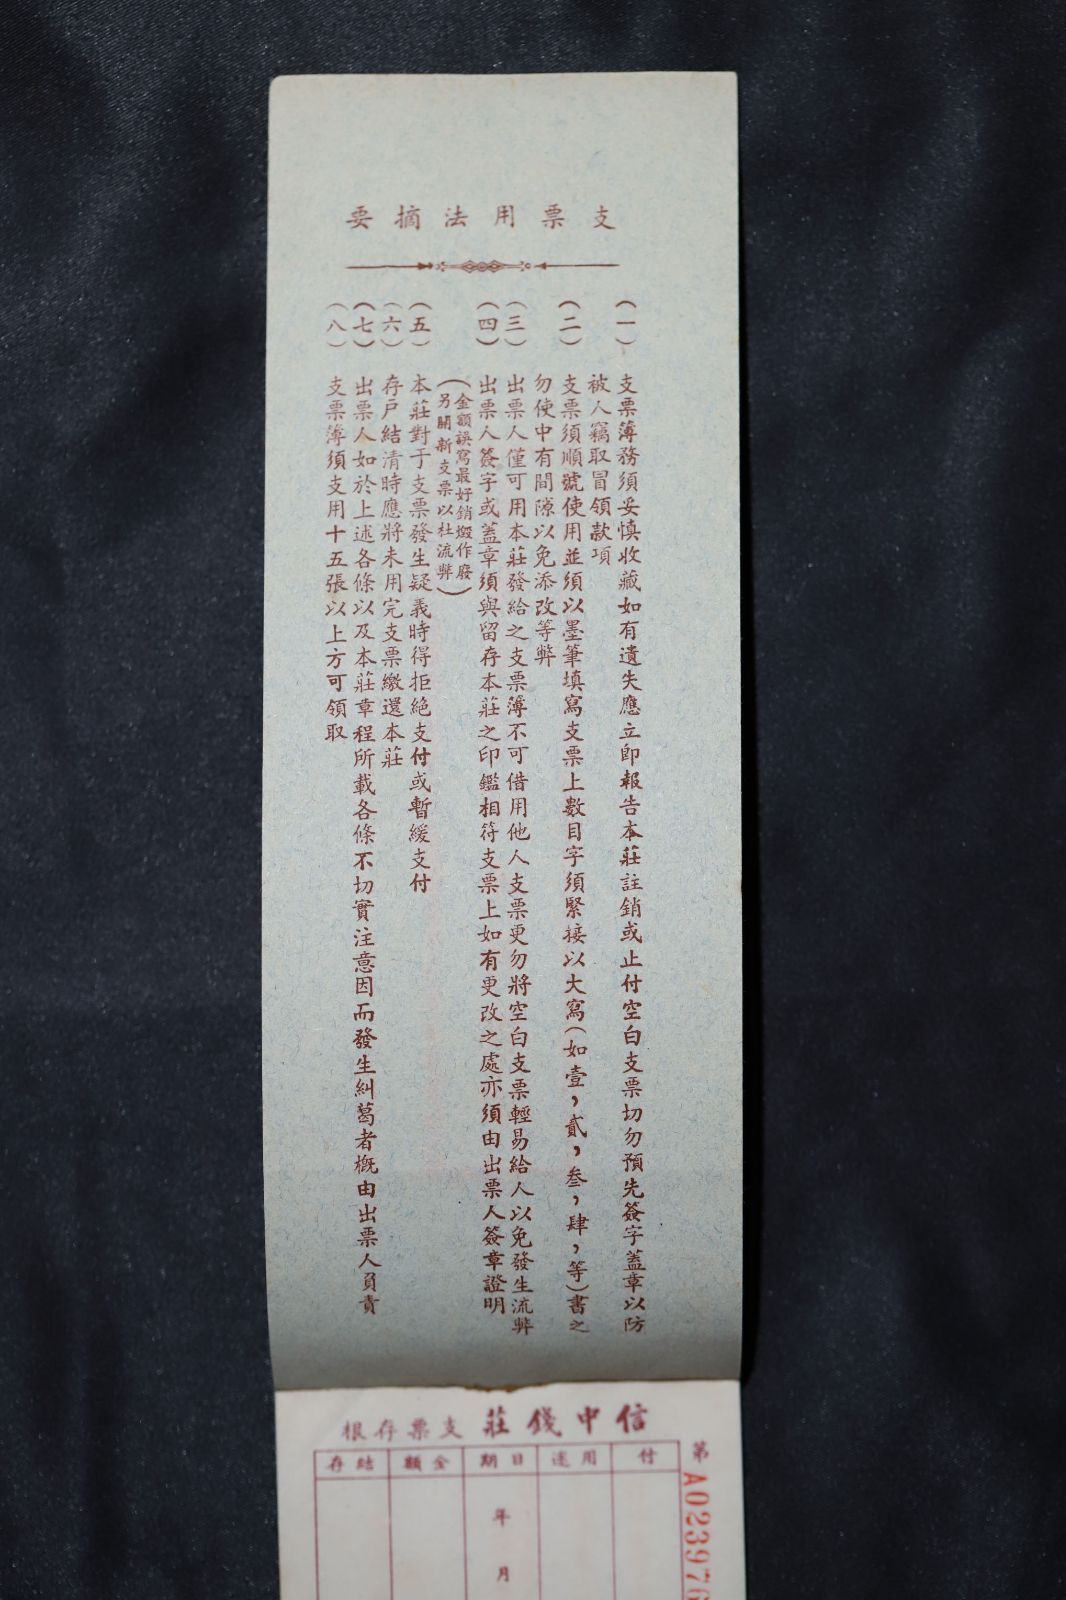 支票用法摘要
（一）支票薄務須妥慎收藏如有遺失應立卽報告本莊註銷或止付空白支票切勿預先簽字蓋章以防
被人竊取冒領款項
（二）支票須順號使用並須以墨筆填寫支票上數目字須緊接以大寫（如壹，貳，叁，肆，等）書之
勿使中有間隙以免添改等弊
（三）出票人僅可用本莊發給之支票簿不可借用他人支票更勿將空白支票輕易給人以免發生流弊
（四）出票人簽字或蓋章須與留存本莊之印鑑相符支票上如有更改之處亦須由出票人簽章證明
（金額誤寫最好銷燬作廢
另開新支票以杜流弊）
（五）本莊對于支票發生疑義時得拒絕支付或暫緩支付
（六）存戶結清時應將未用完支票繳還本莊
（七）出票人如於上述各條以及本莊章程所載各條不切實注意因而發生糾葛者概由出票人負責
（八）支票簿須支用十五張以上方可領取
信中錢莊支票存根
第A023976
付
用途
日期
年
月
金額
結存